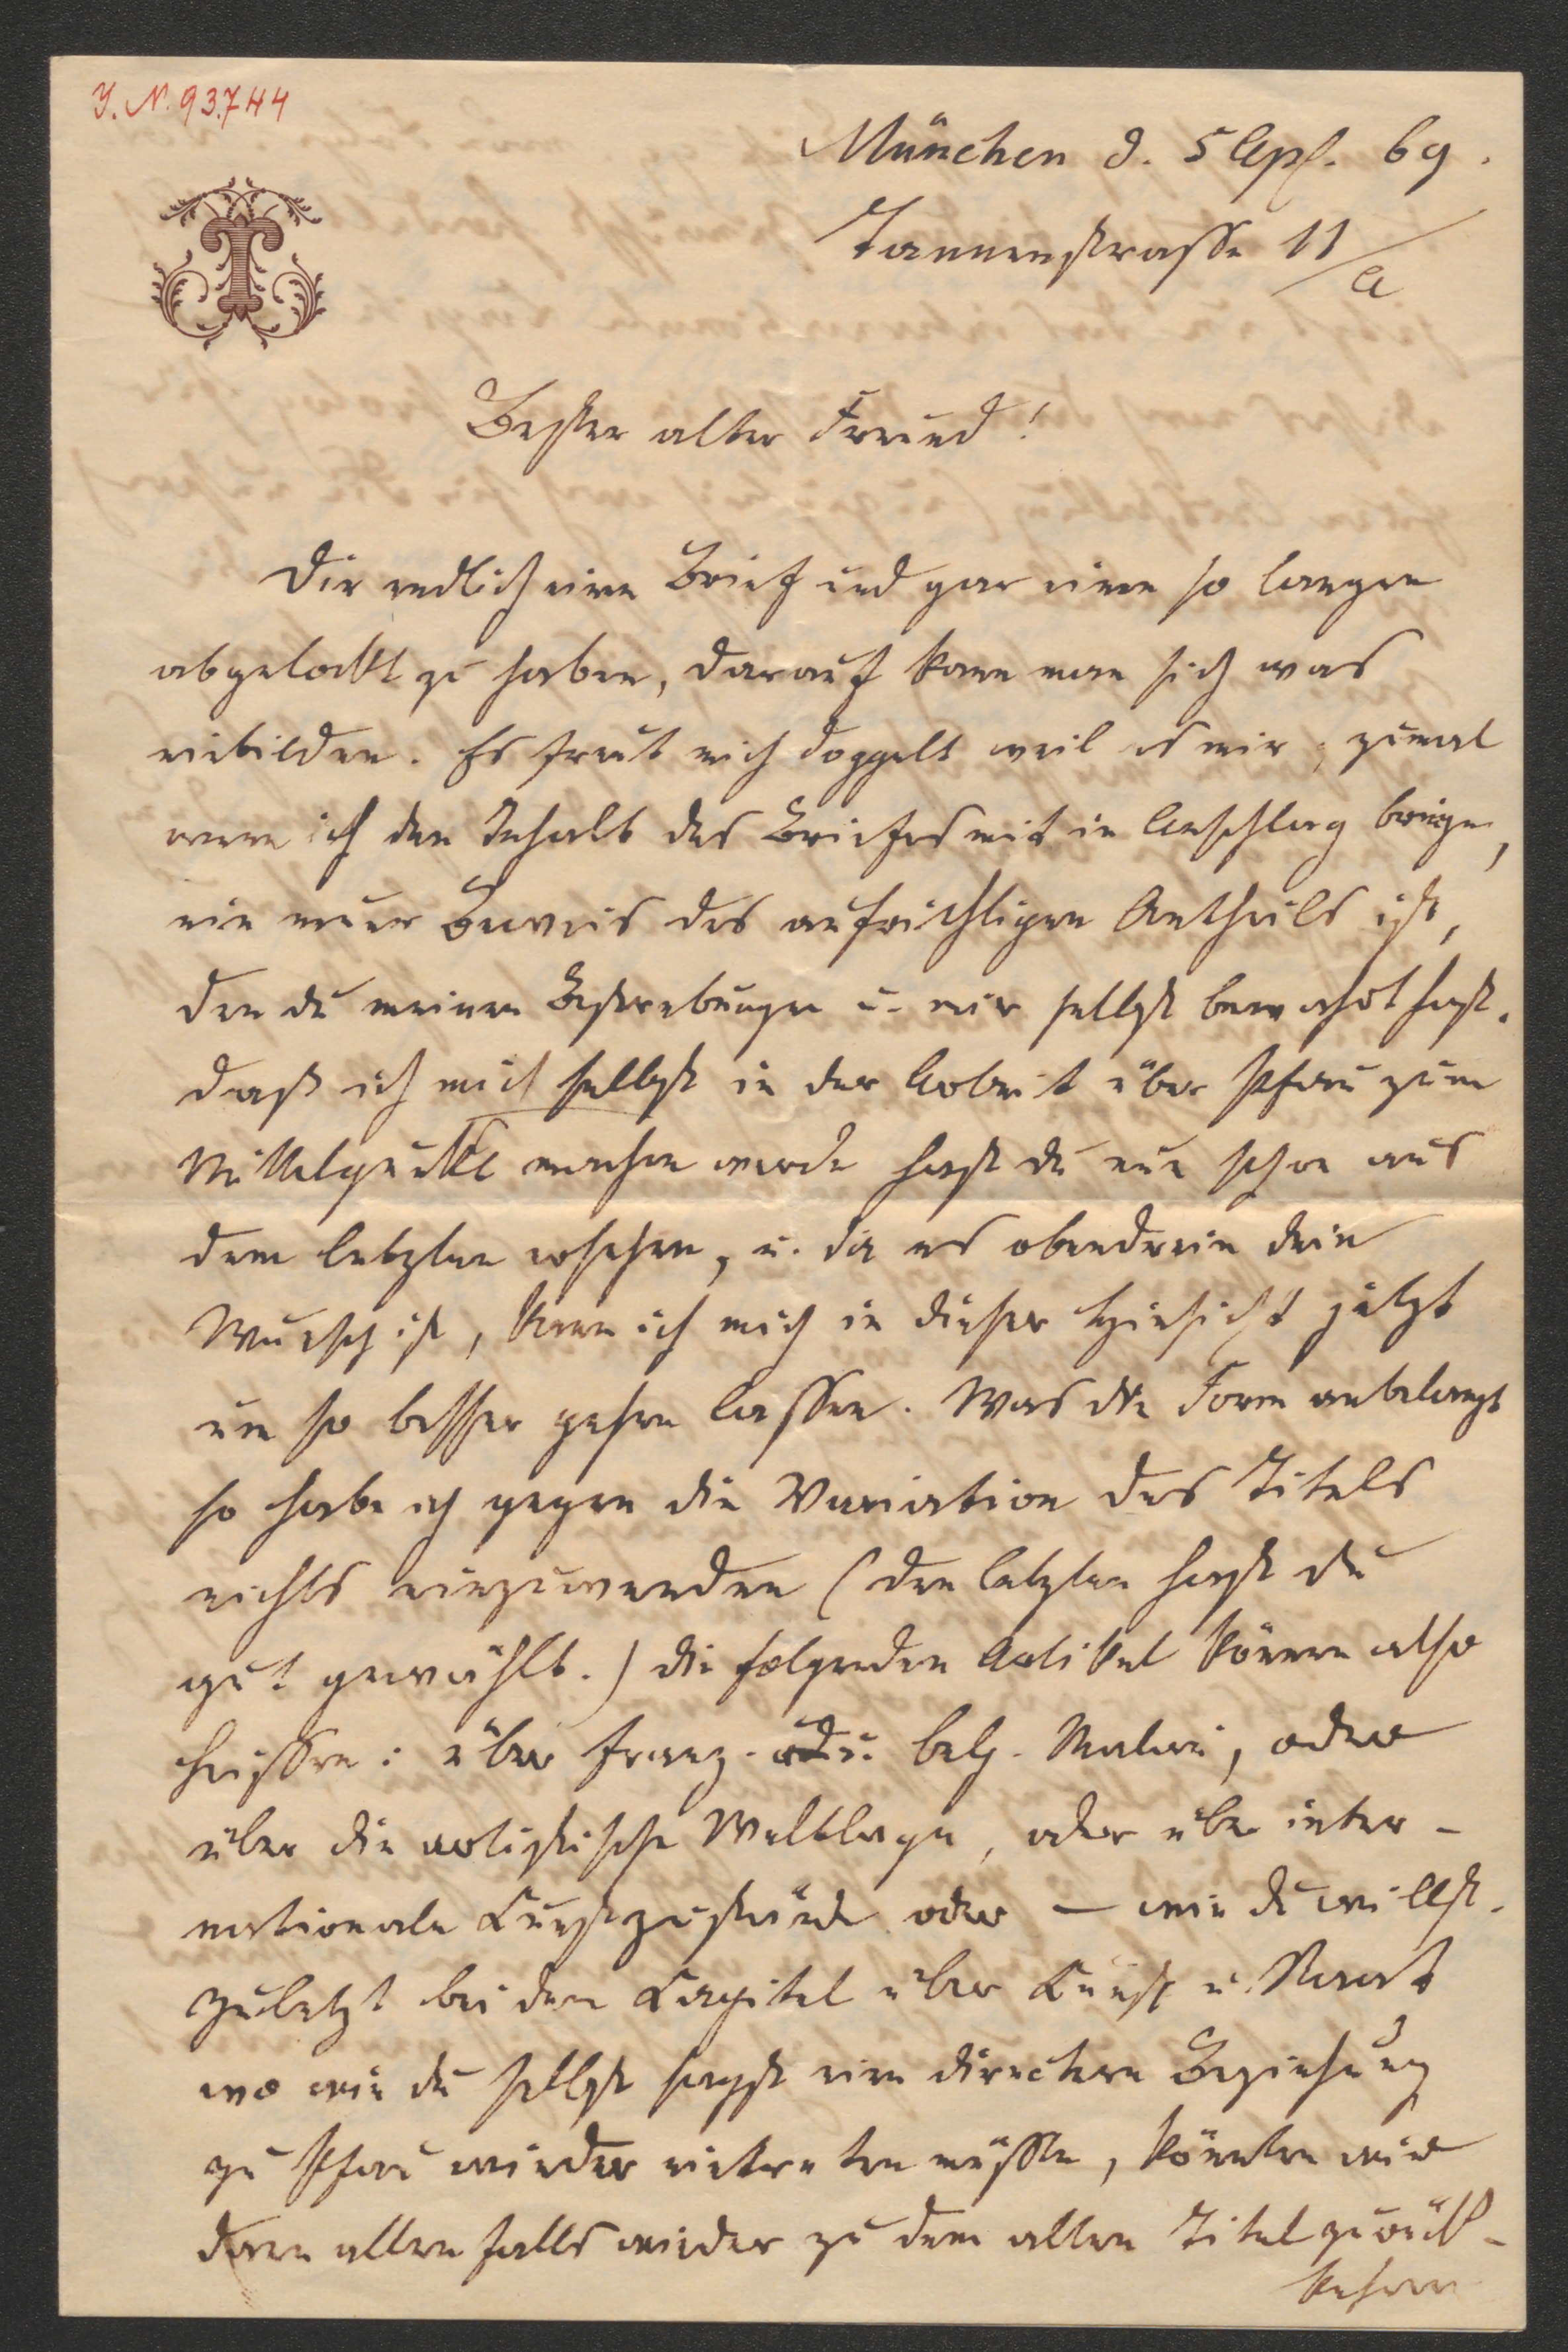 J. N. 93.744
München d. 5 Apl. 69.
Tannenstrasse 11/a
T
Bester alter Freund!
Dir endlich einen Brief und gar einen so langen
abgelockt zu haben, darauf kann man sich was
einbilden. Es freut mich doppelt weil es mir, zumal
wenn ich den Inhalt des Briefes mit in Anschlag bringe,
ein neuer Beweis des aufrichtigen Antheils ist,
den du meinen Bestrebungen u. mir selbst bewahrt hast.
Daß ich mich selbst in der Arbeit über Pfau zum
Mittelpunkt machen werde hast du nun schon aus
dem letzten ersehen, u. da es obendrein dein
Wunsch ist, kann ich mich in dieser Hinsicht jetzt
um so besser gehen lassen. Was die Form anbelangt
so habe ich gegen die Variation des Titels
nichts einzuwenden (den letzten hast du
gut gewählt.) Die folgenden Artikel können also
heissen: über franz. u. belg. Malerei, oder
über die artistische Weltlage, oder über inter-
nationale Kunstzustände oder — wie du willst.
Zuletzt bei dem Kapitel über Kunst u. Staat
wo wie du selbst sagst eine directere Beziehung
zu Pfau wieder eintreten müsste, könnten wir
dann allenfalls wieder zu dem alten Titel zurück-
kehren